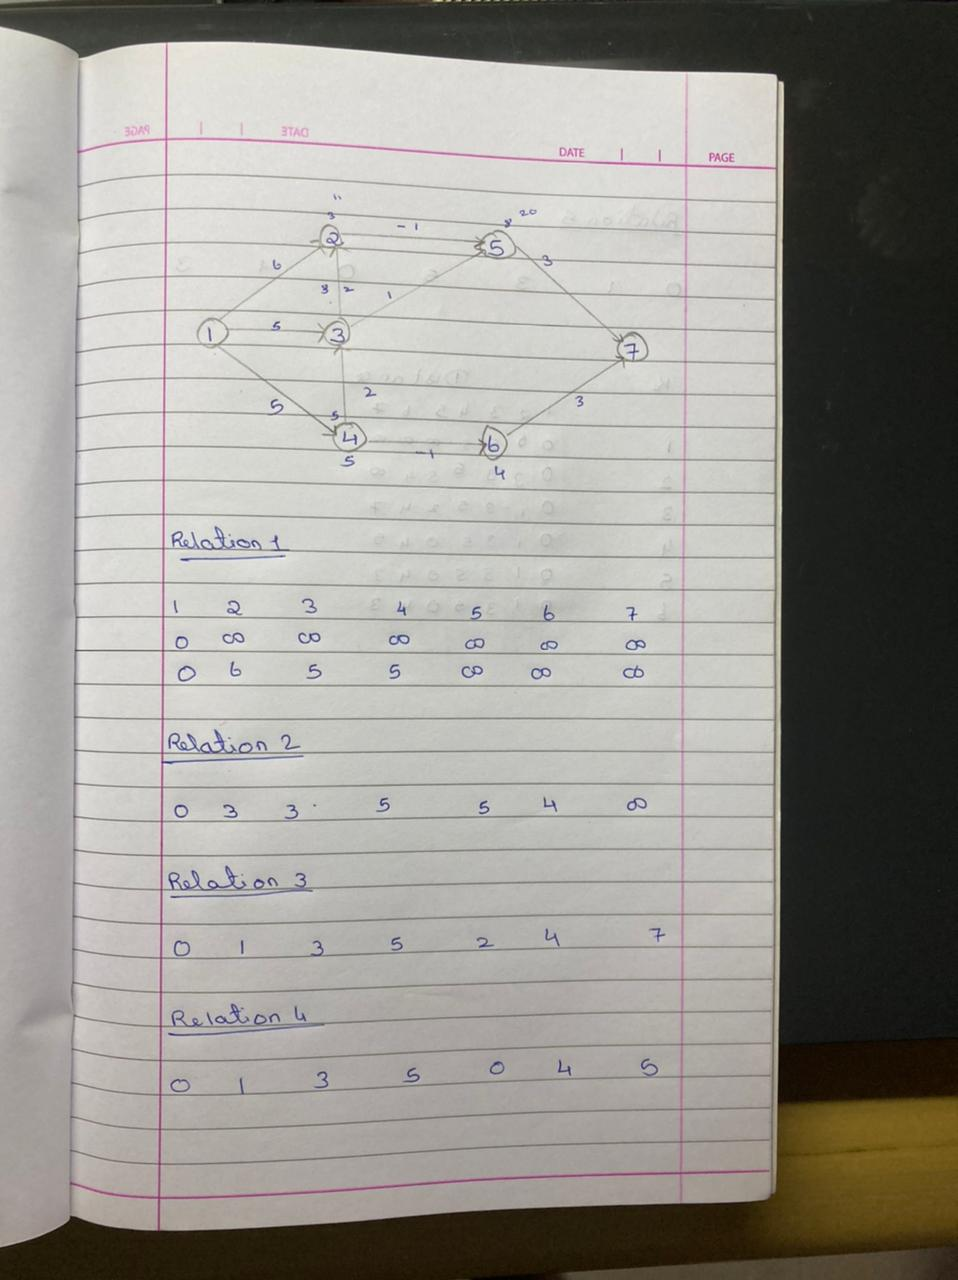 PAGE DATE
DATE PAGE
11
3 20
2 -1 8 5
6 3
3 2 1
1 5 3 7
2 3
5 5
4 -1 6
5 4
Relation 1
1 2 3 4 5 6 7
0 ∞ ∞ ∞ ∞ ∞ ∞
0 6 5 5 ∞ ∞ ∞
Relation 2
0 3 3 5 5 4 ∞
Relation 3
0 1 3 5 2 4 7
Relation 4
0 1 3 5 0 4 5